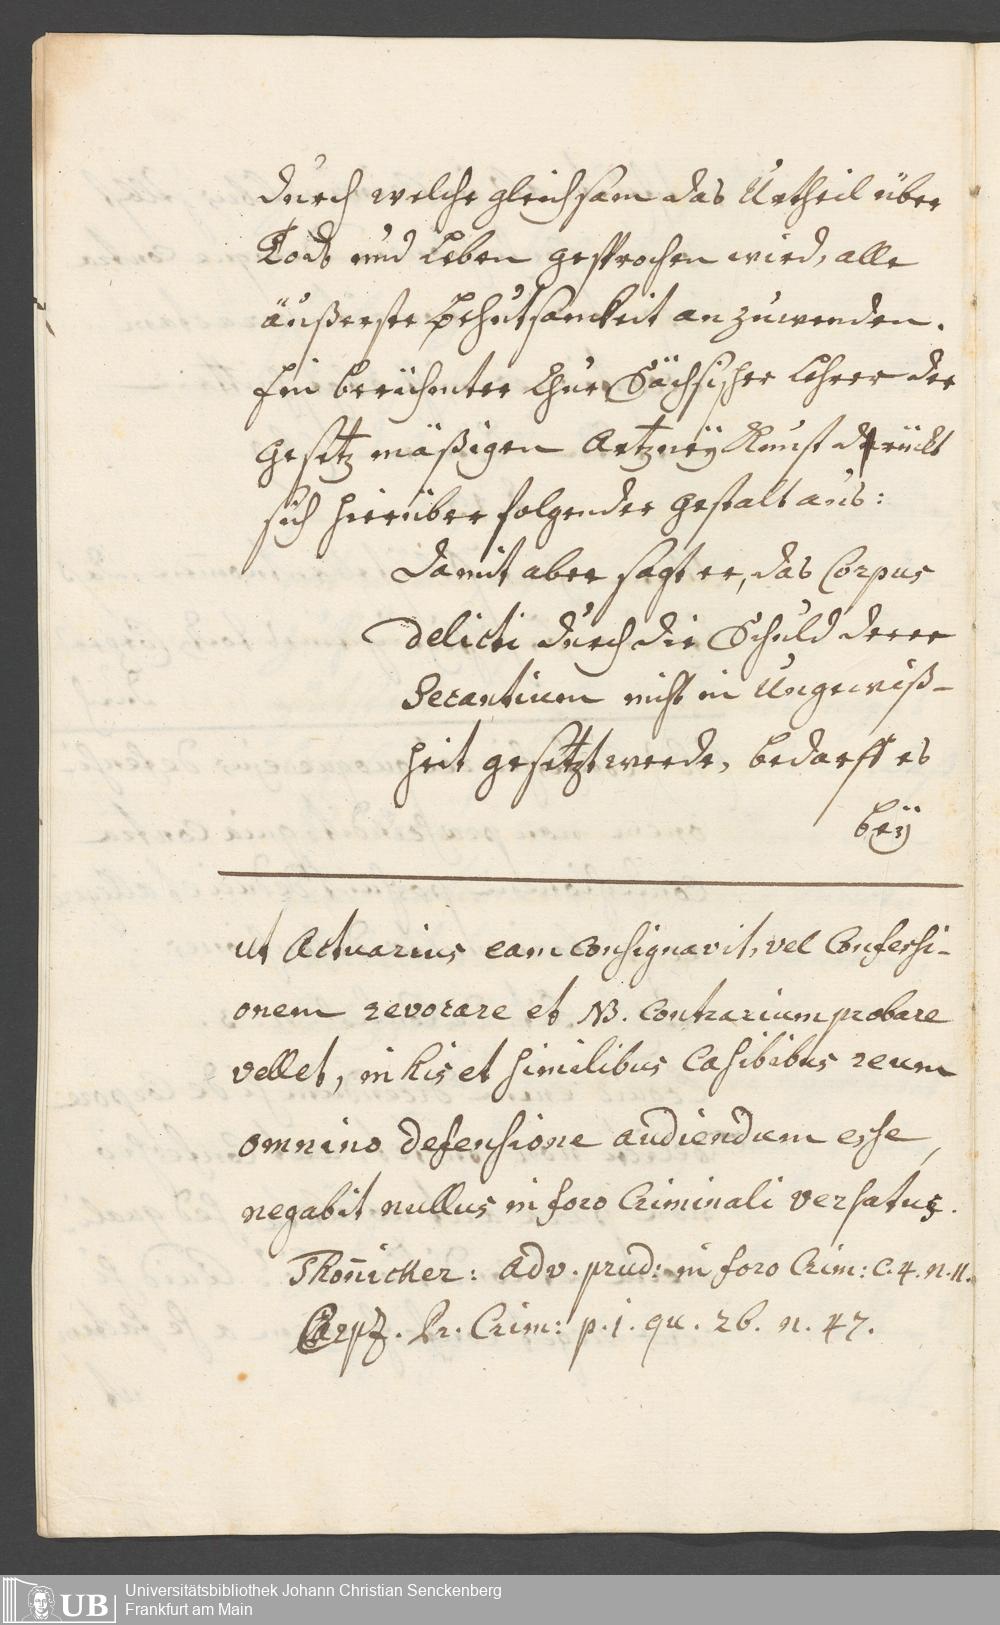 durch welche gleichsam das Urtheil über
Tods und Leben gesprochen wird, alle
äußerste Behutsamkeit anzuwenden.
Ein berühmter Chur Sächsischer Lehrer der
gesetz mäßigen Artzneÿ Kunst drückt
sich hierüber folgender gestalt aus:
Damit aber sagt er, das Corpus
delicti durch die Schuld derer
Secantium nicht in Ungewiß-
heit gesetzt werde, bedarff es
beÿ
ut Actuarius eam consignavit, vel Confessi-
onem revocare et NB. contrarium probare
vellet, in his et similibus Casibibus reum
omnino defensione audiendum esse,
negabit nullus in foro Criminali versatus.
Adv. prud: in foro Crim: C. 4. n. 11.
Carpz. Pr. Crim: p. 1. qu. 26. n. 47.
UB
Universitätsbibliothek Johann Christian Senckenberg
Frankfurt am Main